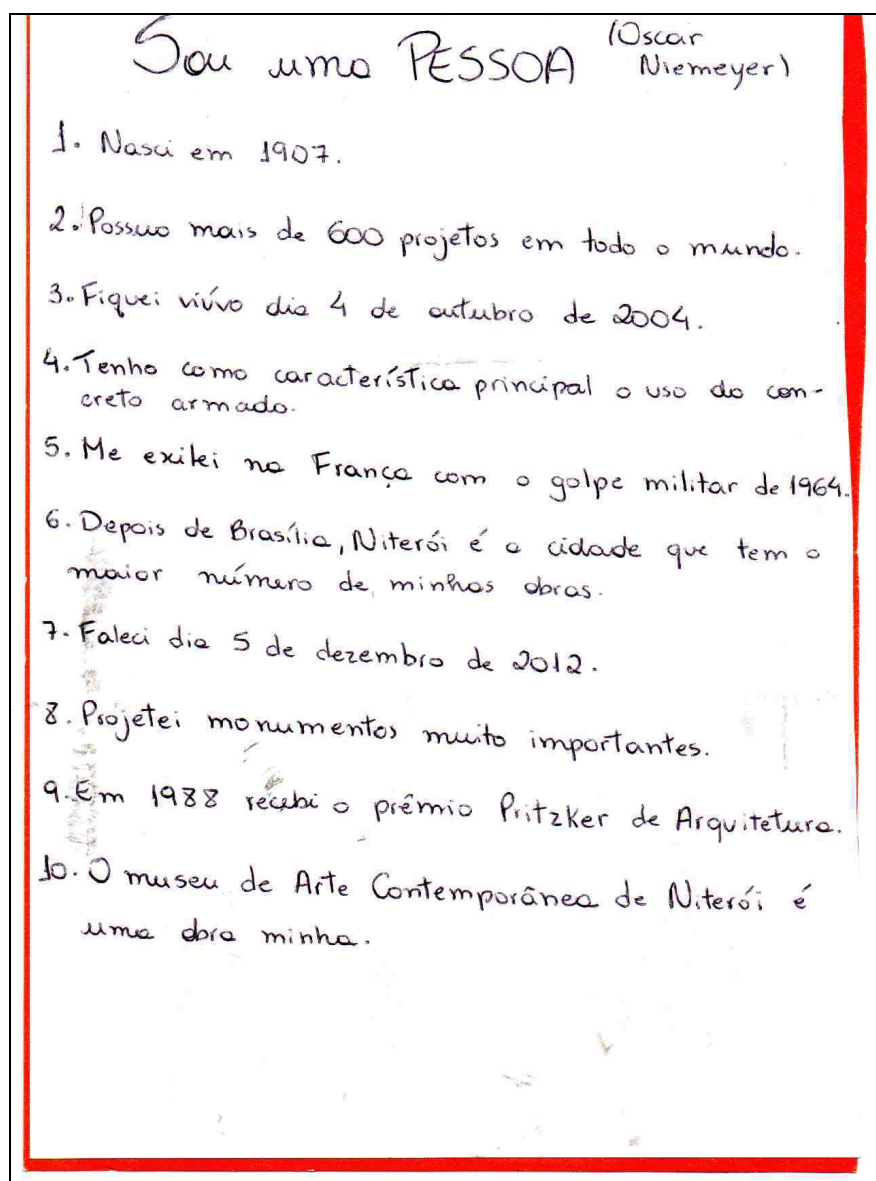 Sou uma PESSOA (Oscar
Niemeyer)
1. Nasci em 1907.
2. Possuo mais de 600 projetos em todo o mundo.
3. Fiquei viúvo dia 4 de outubro de 2004.
4. Tenho como característica principal o uso do con-
creto armado.
5. Me exilei na França com o golpe militar de 1964.
6. Depois de Brasília, Niterói é a cidade que tem o
maior número de minhas obras.
7. Faleci dia 5 de dezembro de 2012.
8. Projetei monumentos muito importantes.
9. Em 1988 recebi o prêmio Pritzker de Arquitetura.
10. O museu de Arte Contemporânea de Niterói é
uma obra minha.